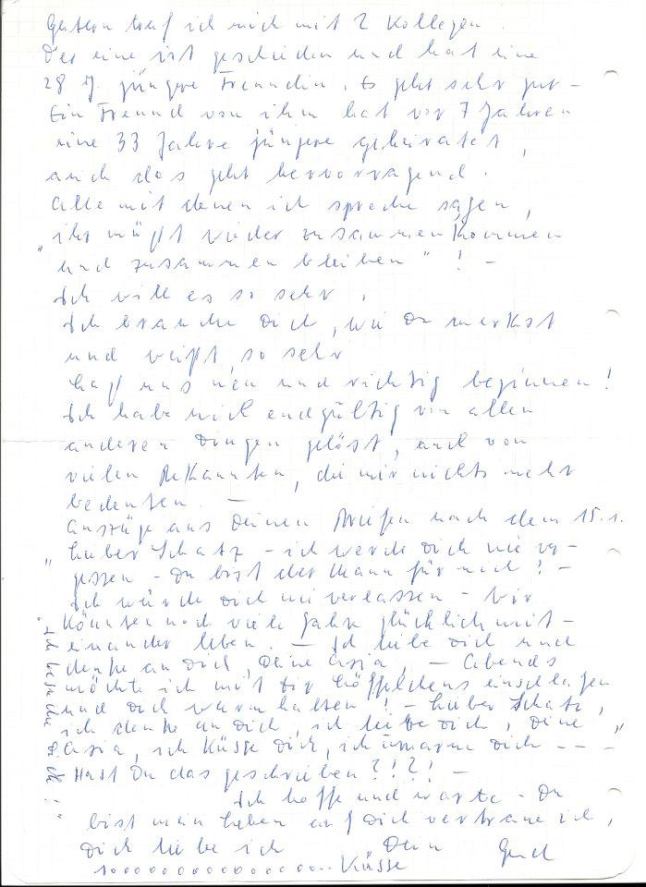 Gestern traf ich mich mit 2 Kollegen.
Der eine ist geschieden und hat eine
28 J. jüngere Freundin. Es geht sehr gut –
Ein Freund von ihm hat vor 7 Jahren
eine 33 Jahre jüngere geheiratet,
auch das geht hervorragend.
Alle mit denen ich spreche sagen,
"ihr müßt wieder zusammen kommen
und zusammen bleiben" ! –
Ich will es so sehr.
Ich brauche Dich, wie Du merkst
und weißt, so sehr
laß uns neu und richtig beginnen!
Ich habe mich endgültig von allen
anderen Dingen gelöst, auch von
vielen Bekannten, die mir nichts mehr
bedeuten. –
Auszüge aus Deinen Briefen nach dem 15.1.
"Lieber Schatz – ich werde Dich nie ver-
gessen – Du bist der Mann für mich! –
Ich würde Dich nie verlassen – Wir
könnten noch viele Jahre glücklich mit-
einander leben. – Ich liebe Dich und
denke an Dich, Deine Asia, – Abends
möchte ich mit Dir Löffelchens einschlafen
und Dich warm halten! – Lieber Schatz,
ich denke an Dich, ich liebe Dich, Deine
Asia, ich küsse Dich, ich umarme Dich – – –"
Hast Du das geschrieben?!?! –
Ich hoffe und warte – Du
bist mein Leben auf Dich vertraue ich,
Dich liebe ich Dein Gerd
1000000000000000... Küsse